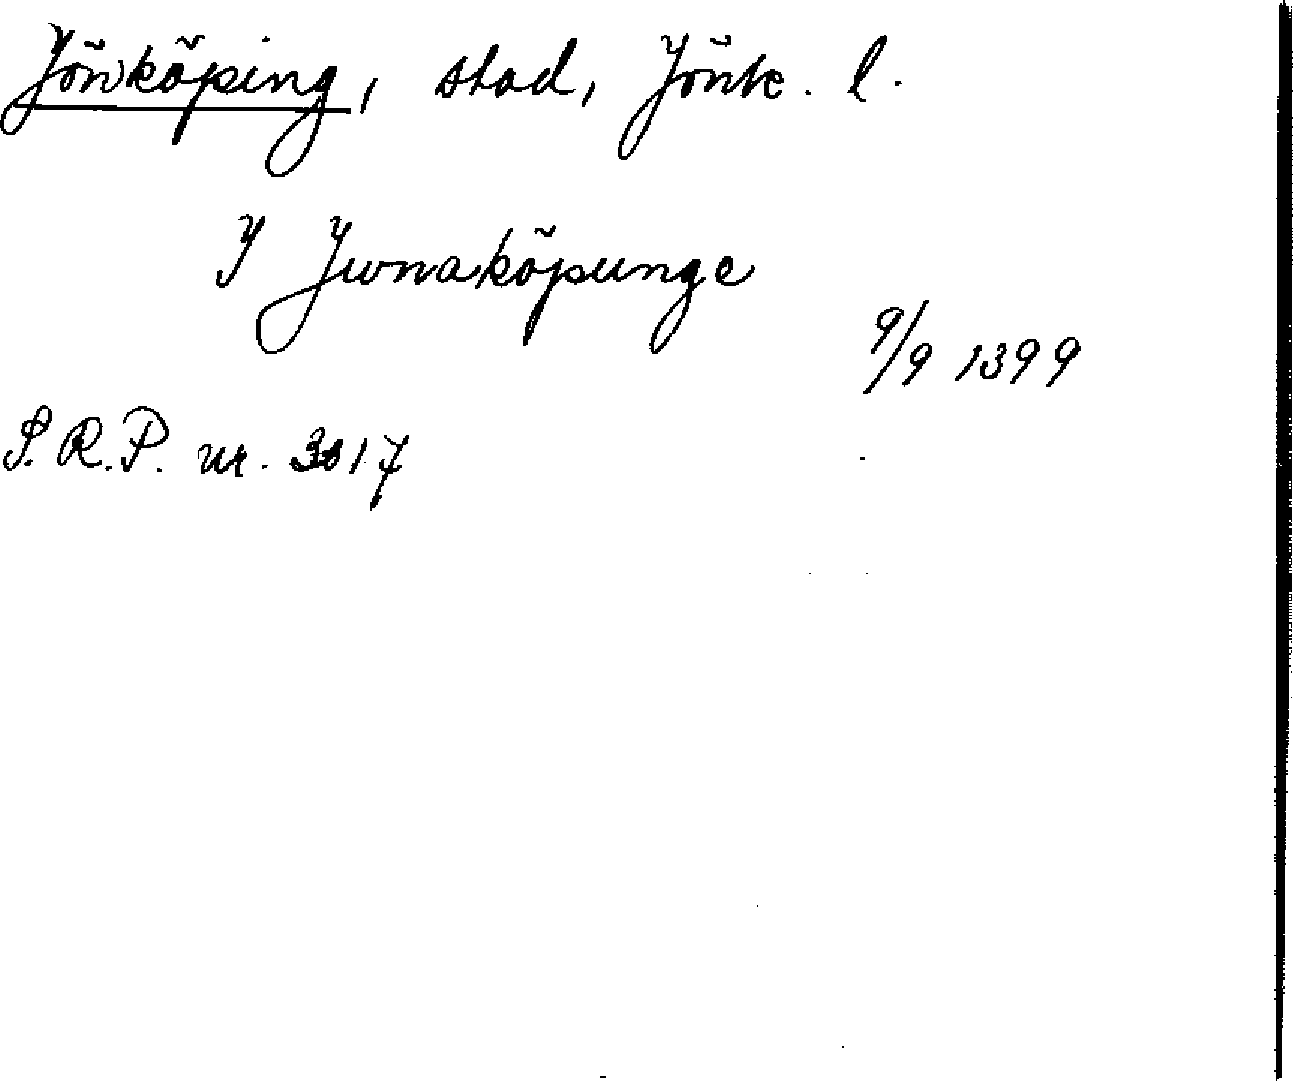 Jönköping, stad, Jönk. l.
J Junaköpunge
9/9 1399
S.R.P. nr. 3017